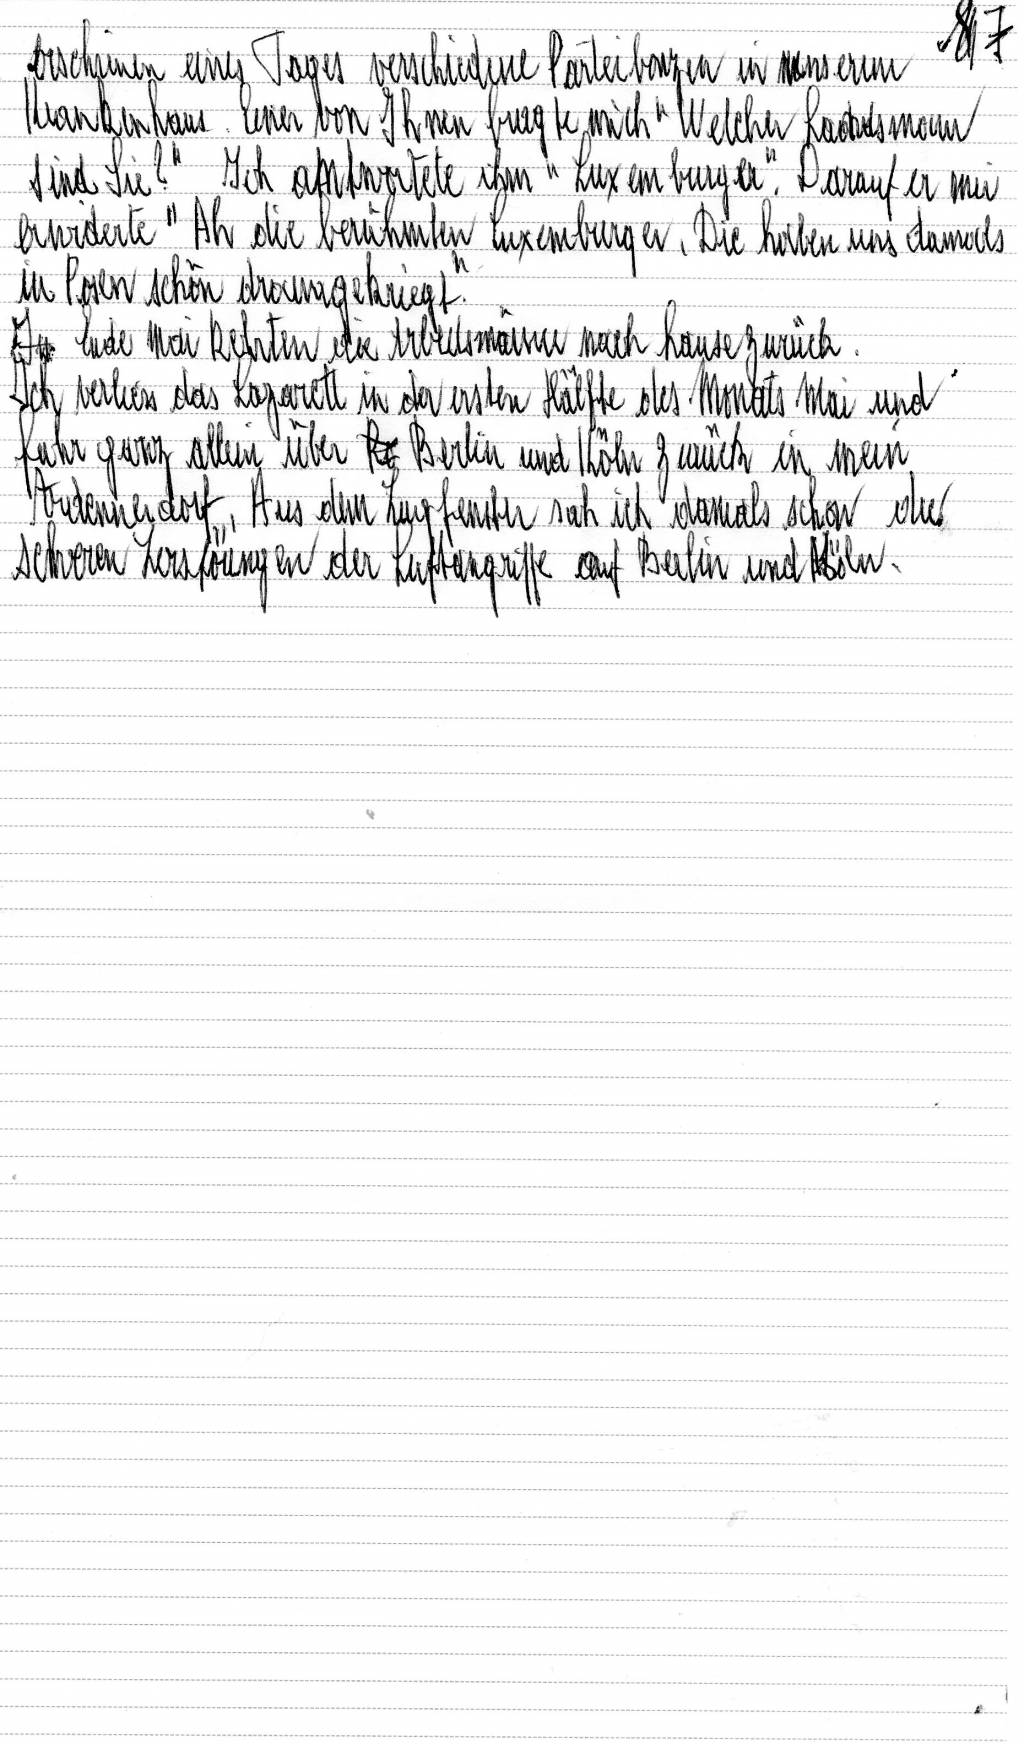 7
erscheinen eines Tages verschiedene Parteibonzen in unserem
Krankenhaus. Einer von Ihnen fragte mich "Welcher Landsmann
sind Sie?" Ich antwortete ihm "Luxemburger". Darauf er mir
erwiderte "Ah die berühmten Luxemburger. Die haben uns damals
in Posen schön drangekriegt".
Ende Mai kehrten die Arbeitsmänner nach hause zurück.
Ich verliess das Lazarett in der ersten Hälfte des Monats Mai und
fuhr ganz allein über Berlin und Köln zurück in mein
Ardennendorf. Aus dem Zugfenster sah ich damals schon die
schweren Zerstörungen der Luftangriffe auf Berlin und Köln.